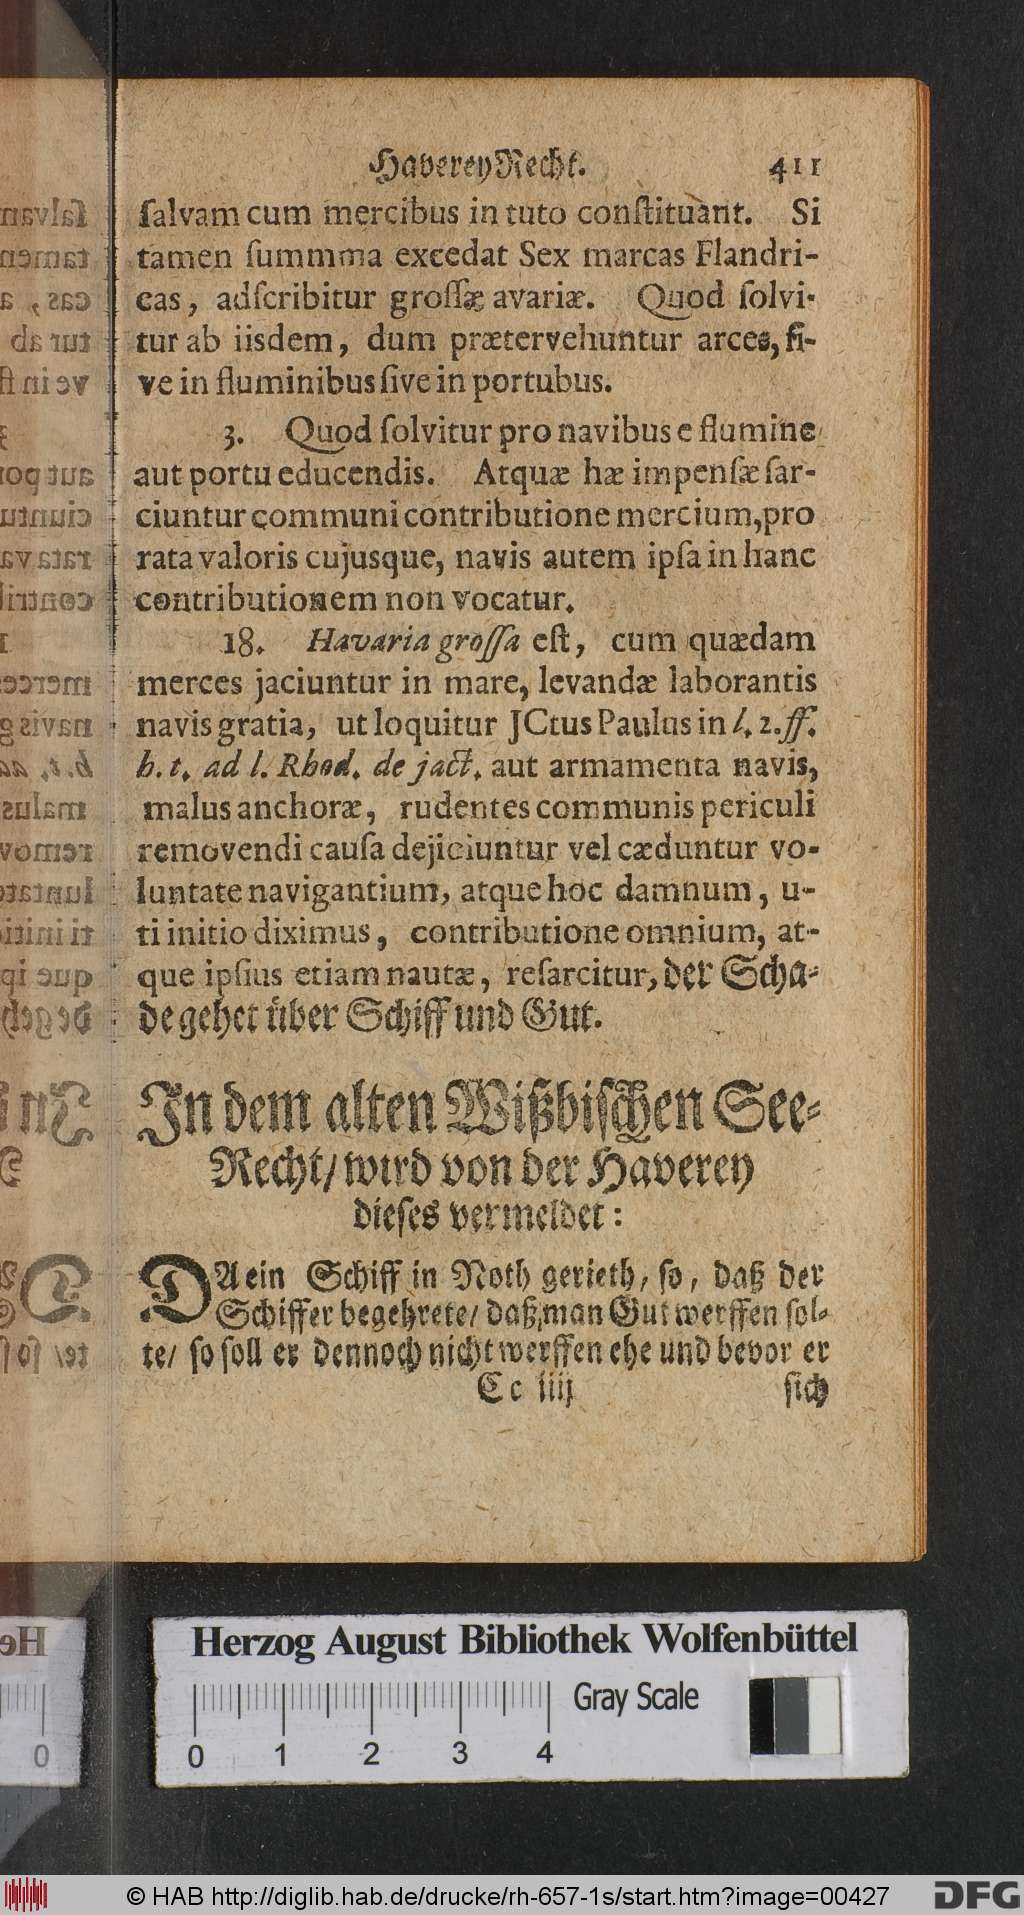 Haverey Recht. 411
ſalvam cum mercibus in tuto conſtituànt. Si
tamen ſummma excedat Sex marcas Flandri-
cas, adſcribitur groſſæ avariæ. Quod ſolvi-
tur ab iisdem, dum prætervehuntur arces, ſi-
ve in fluminibus ſive in portubus.
3. Quod ſolvitur pro navibus e flumine
aut portu educendis. Atquæ hæ impenſæ ſar-
ciuntur communi contributione mercium, pro
rata valoris cujusque, navis autem ipſa in hanc
contributionem non vocatur.
18. Havaria groſſa eſt, cum quædam
merces jaciuntur in mare, levandæ laborantis
navis gratia, ut loquitur JCtus Paulus in l. 2. ff.
h. t. ad l. Rhod. de jact. aut armamenta navis,
malus anchoræ, rudentes communis periculi
removendi cauſa dejiciuntur vel cæduntur vo-
luntate navigantium, atque hoc damnum, u-
ti initio diximus, contributione omnium, at-
que ipſius etiam nautæ, reſarcitur, der Scha-
de gehet über Schiff und Gut.
In dem alten Wißbiſchen See-
Recht/ wird von der Haverey
dieſes vermeldet:
DA ein Schiff in Noth gerieth/ ſo, daß der
Schiffer begehrete/ daß man Gut werffen ſol-
te/ ſo ſoll er dennoch nicht werffen ehe und bevor er
Cc iiij ſich
Herzog August Bibliothek Wolfenbüttel
Gray Scale
0 1 2 3 4
© HAB http://diglib.hab.de/drucke/rh-657-1s/start.htm?image=00427
DFG